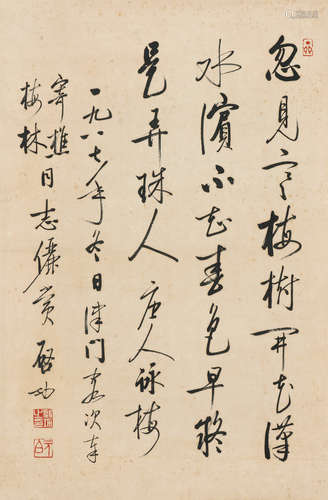 忽見寒梅樹開花漢
水濱不知春色早疑
是弄珠人 唐人詠梅
一九八七年冬日津門客次奉
寄樵
梅林同志儷賞 啟功